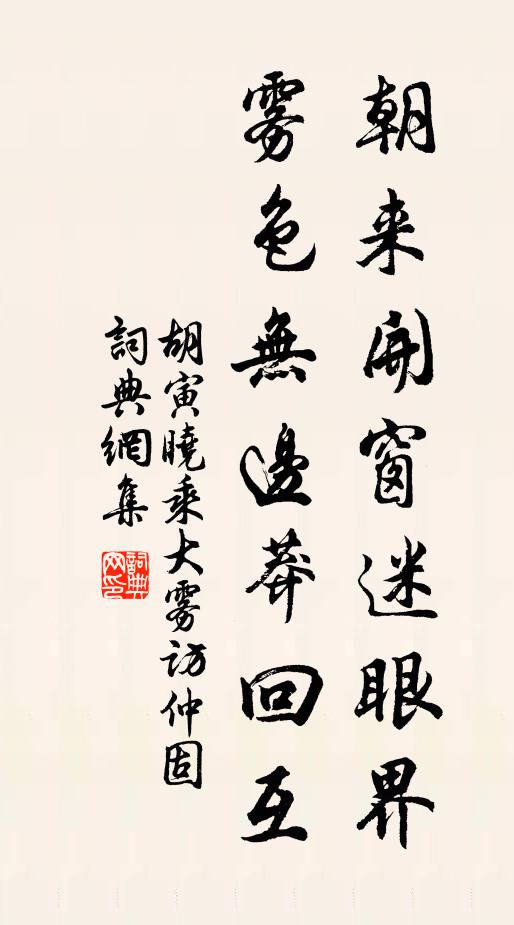 朝来開窗迷眼界
雾色無邊莽回互
胡寅曉乘大雾訪仲固
詞典網集
詞典網印